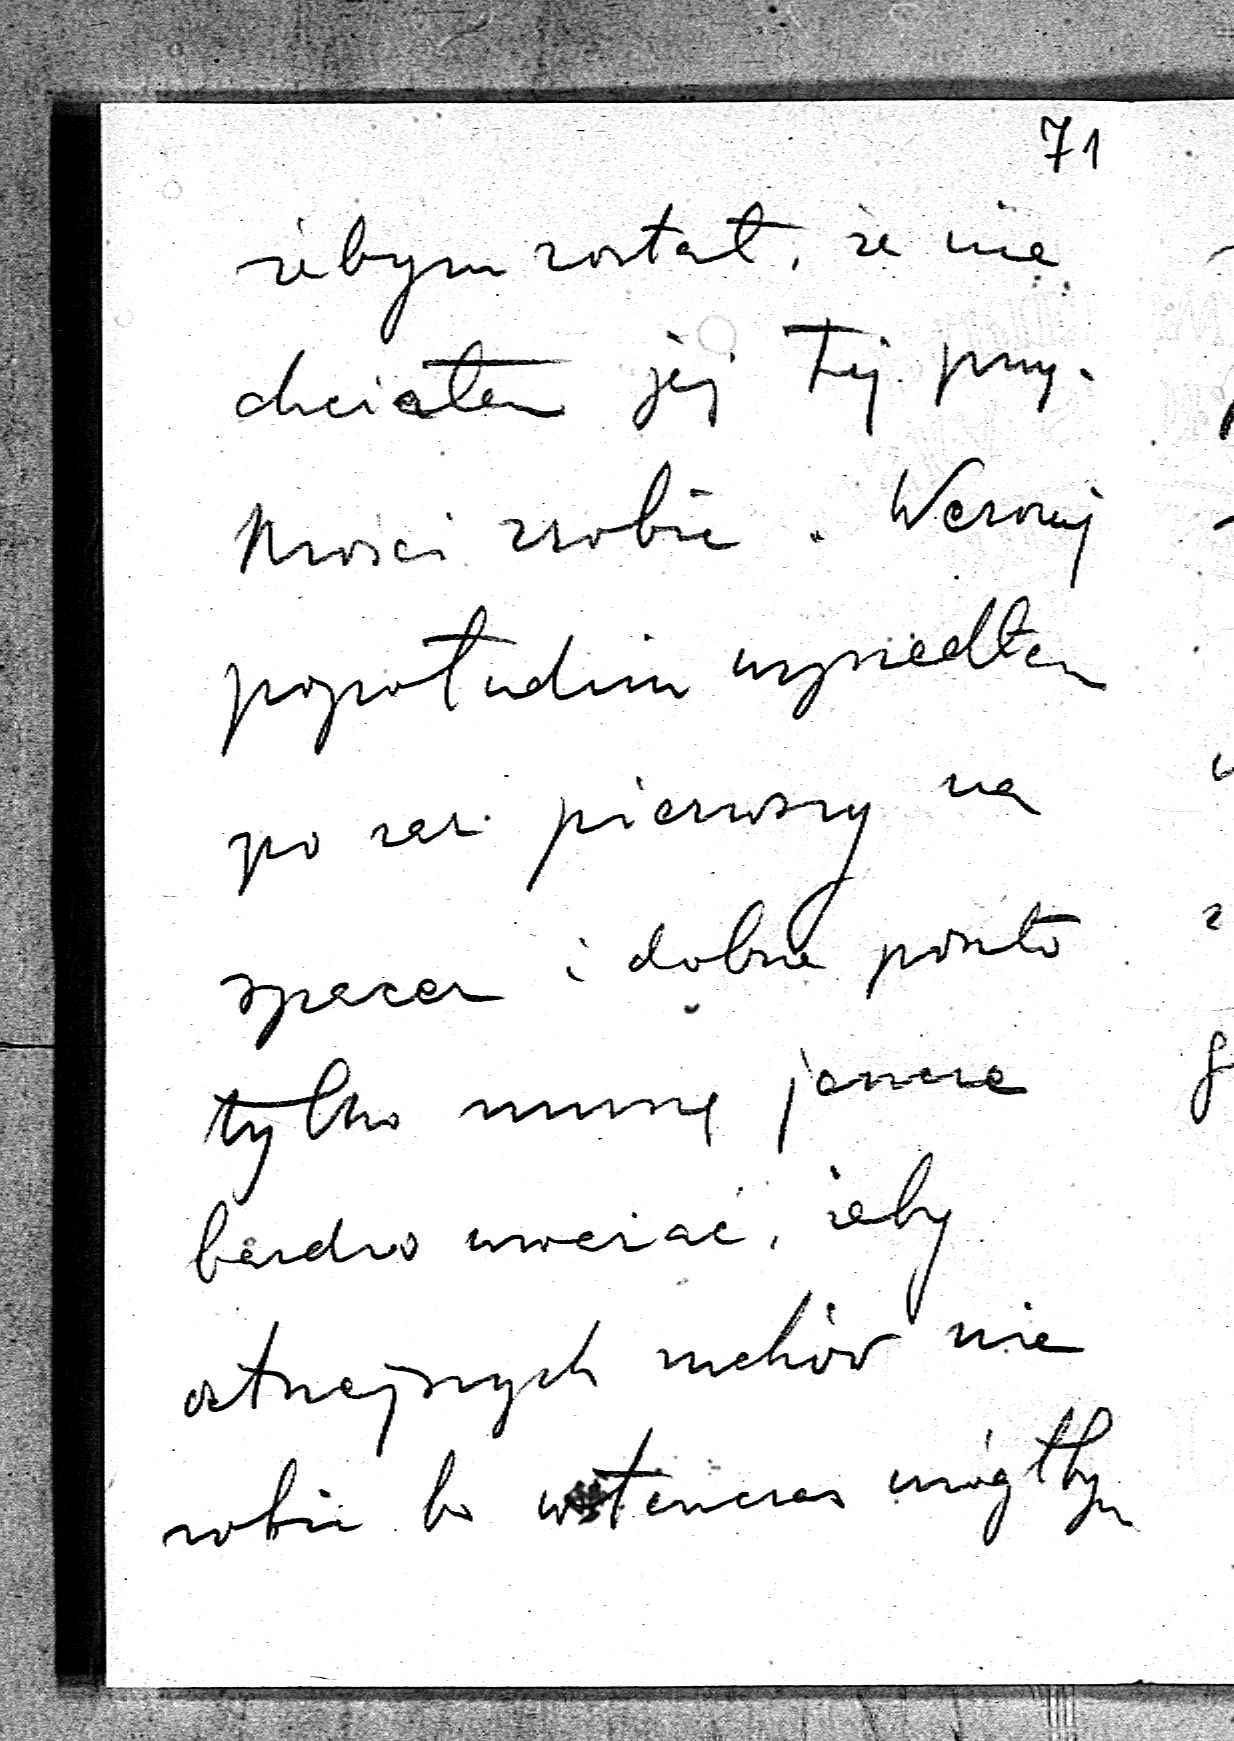 71
żebym został, że nie
chciałem jej tej przy-
krości zrobić. Wczoraj
popołudniu wyszedłem
po raz pierwszy na
spacer i dobrze poszło
tylko muszę jeszcze
bardzo uważać, żeby
ostrzejszych ruchów nie
robić bo wtenczas mógłbym